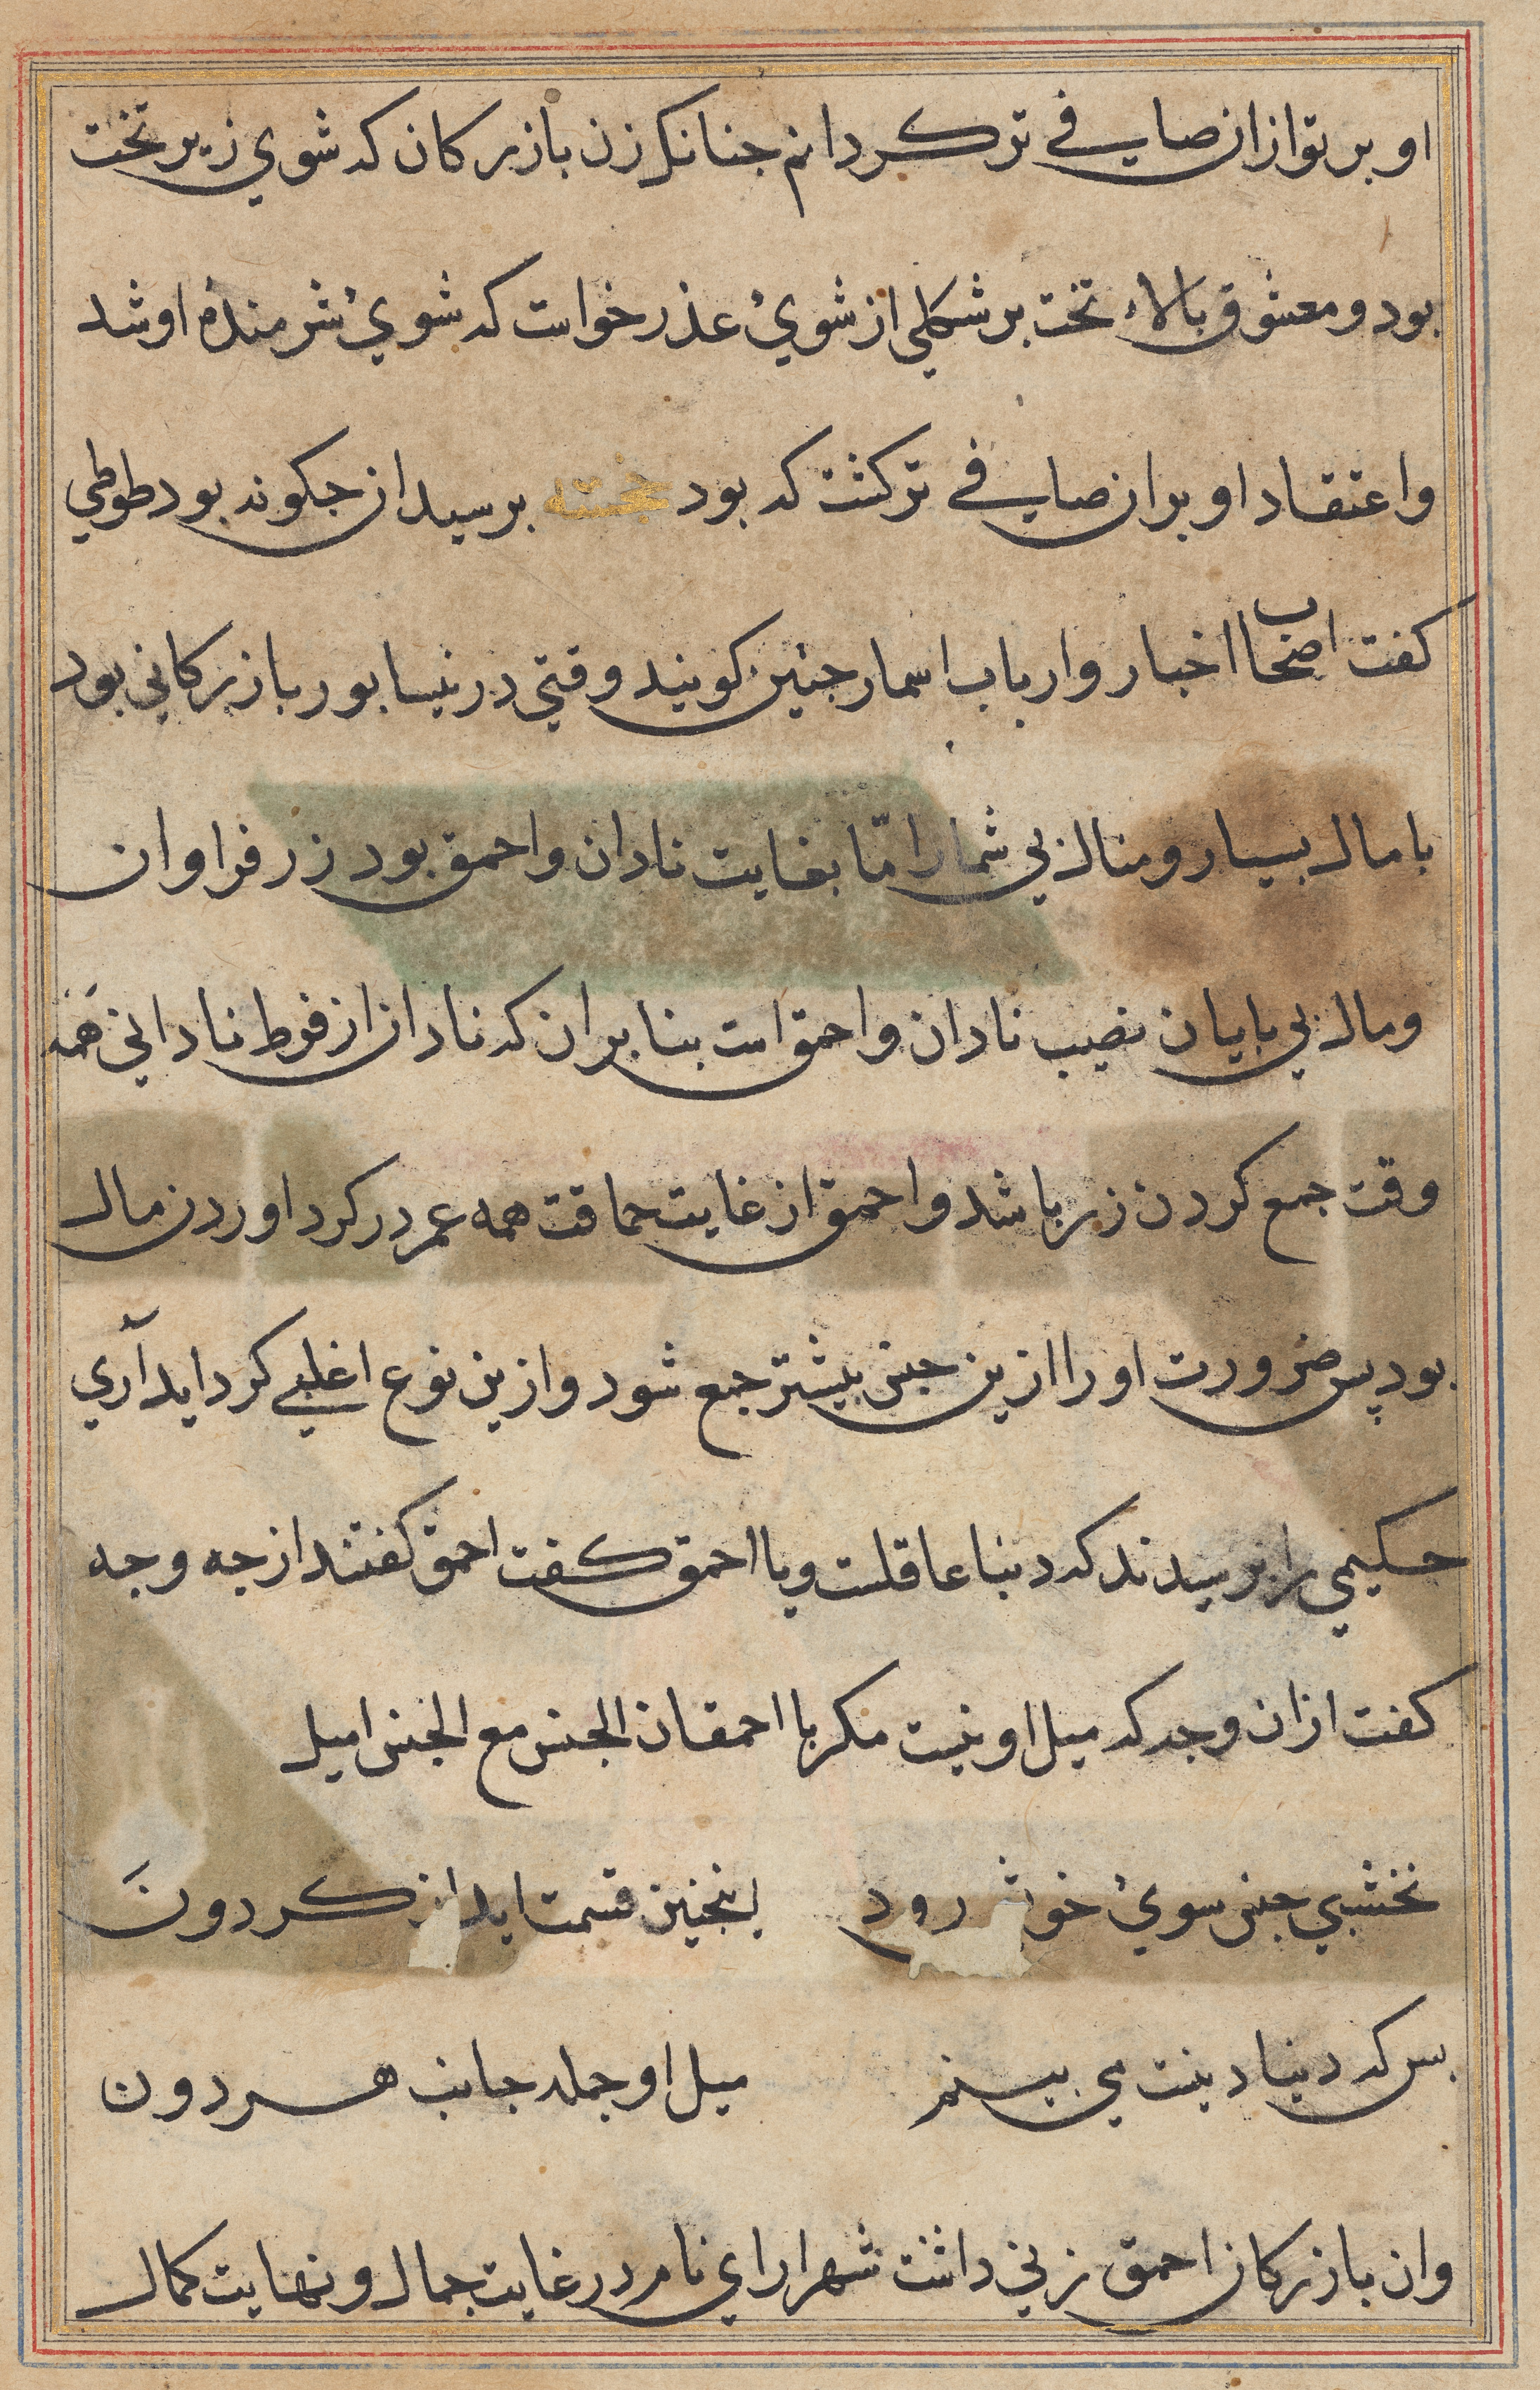 او بر تو ازان صافی تر کردانم جنانکه زن بازرکان که شوي زیر تخت
بود و معشوق بالاء تخت بر شکلی از شوئ عذر خواست که شوئ شرمندهٔ او شد
واعتقاد او بران صافی تر کشت که بود خجسته برسید ان جکونه بود طوطی
کفت اصحاب اخبار وارباب اسمار جنین کویند وقتی در نیسابور بازرکانی بود
با مال بسیار ومنال بی شمار امّا بغایت نادان واحمق بود زر فراوان
ومال بی بایان نصیب نادان واحمق است بنا بران که نادان از فرط نادانی همه
وقت جمع کردن زر باشد واحمق از غایت حماقت همه عمر در کرد اوردن مال
بود پس ضرورت او را ازین جنس بیشتر جمع شود وازین نوع اغلبی کرد اید آري
حکیمی را برسیدند که دینا عاقلست ویا احمق کفت احمق کفتند از جه وجه
کفت ازان وجه که میل او نیست مکر با احمقان الجنس مع الجنس امیل
نخشبي جنس سوئ خوش رود اینجنین قسمت اید از کردون
بس که دینا دینت می بینم میل او جمله جانب هر دون
وان بازرکان احمق زنی داشت شهراراي نام در غایت جمال ونهایت کمال